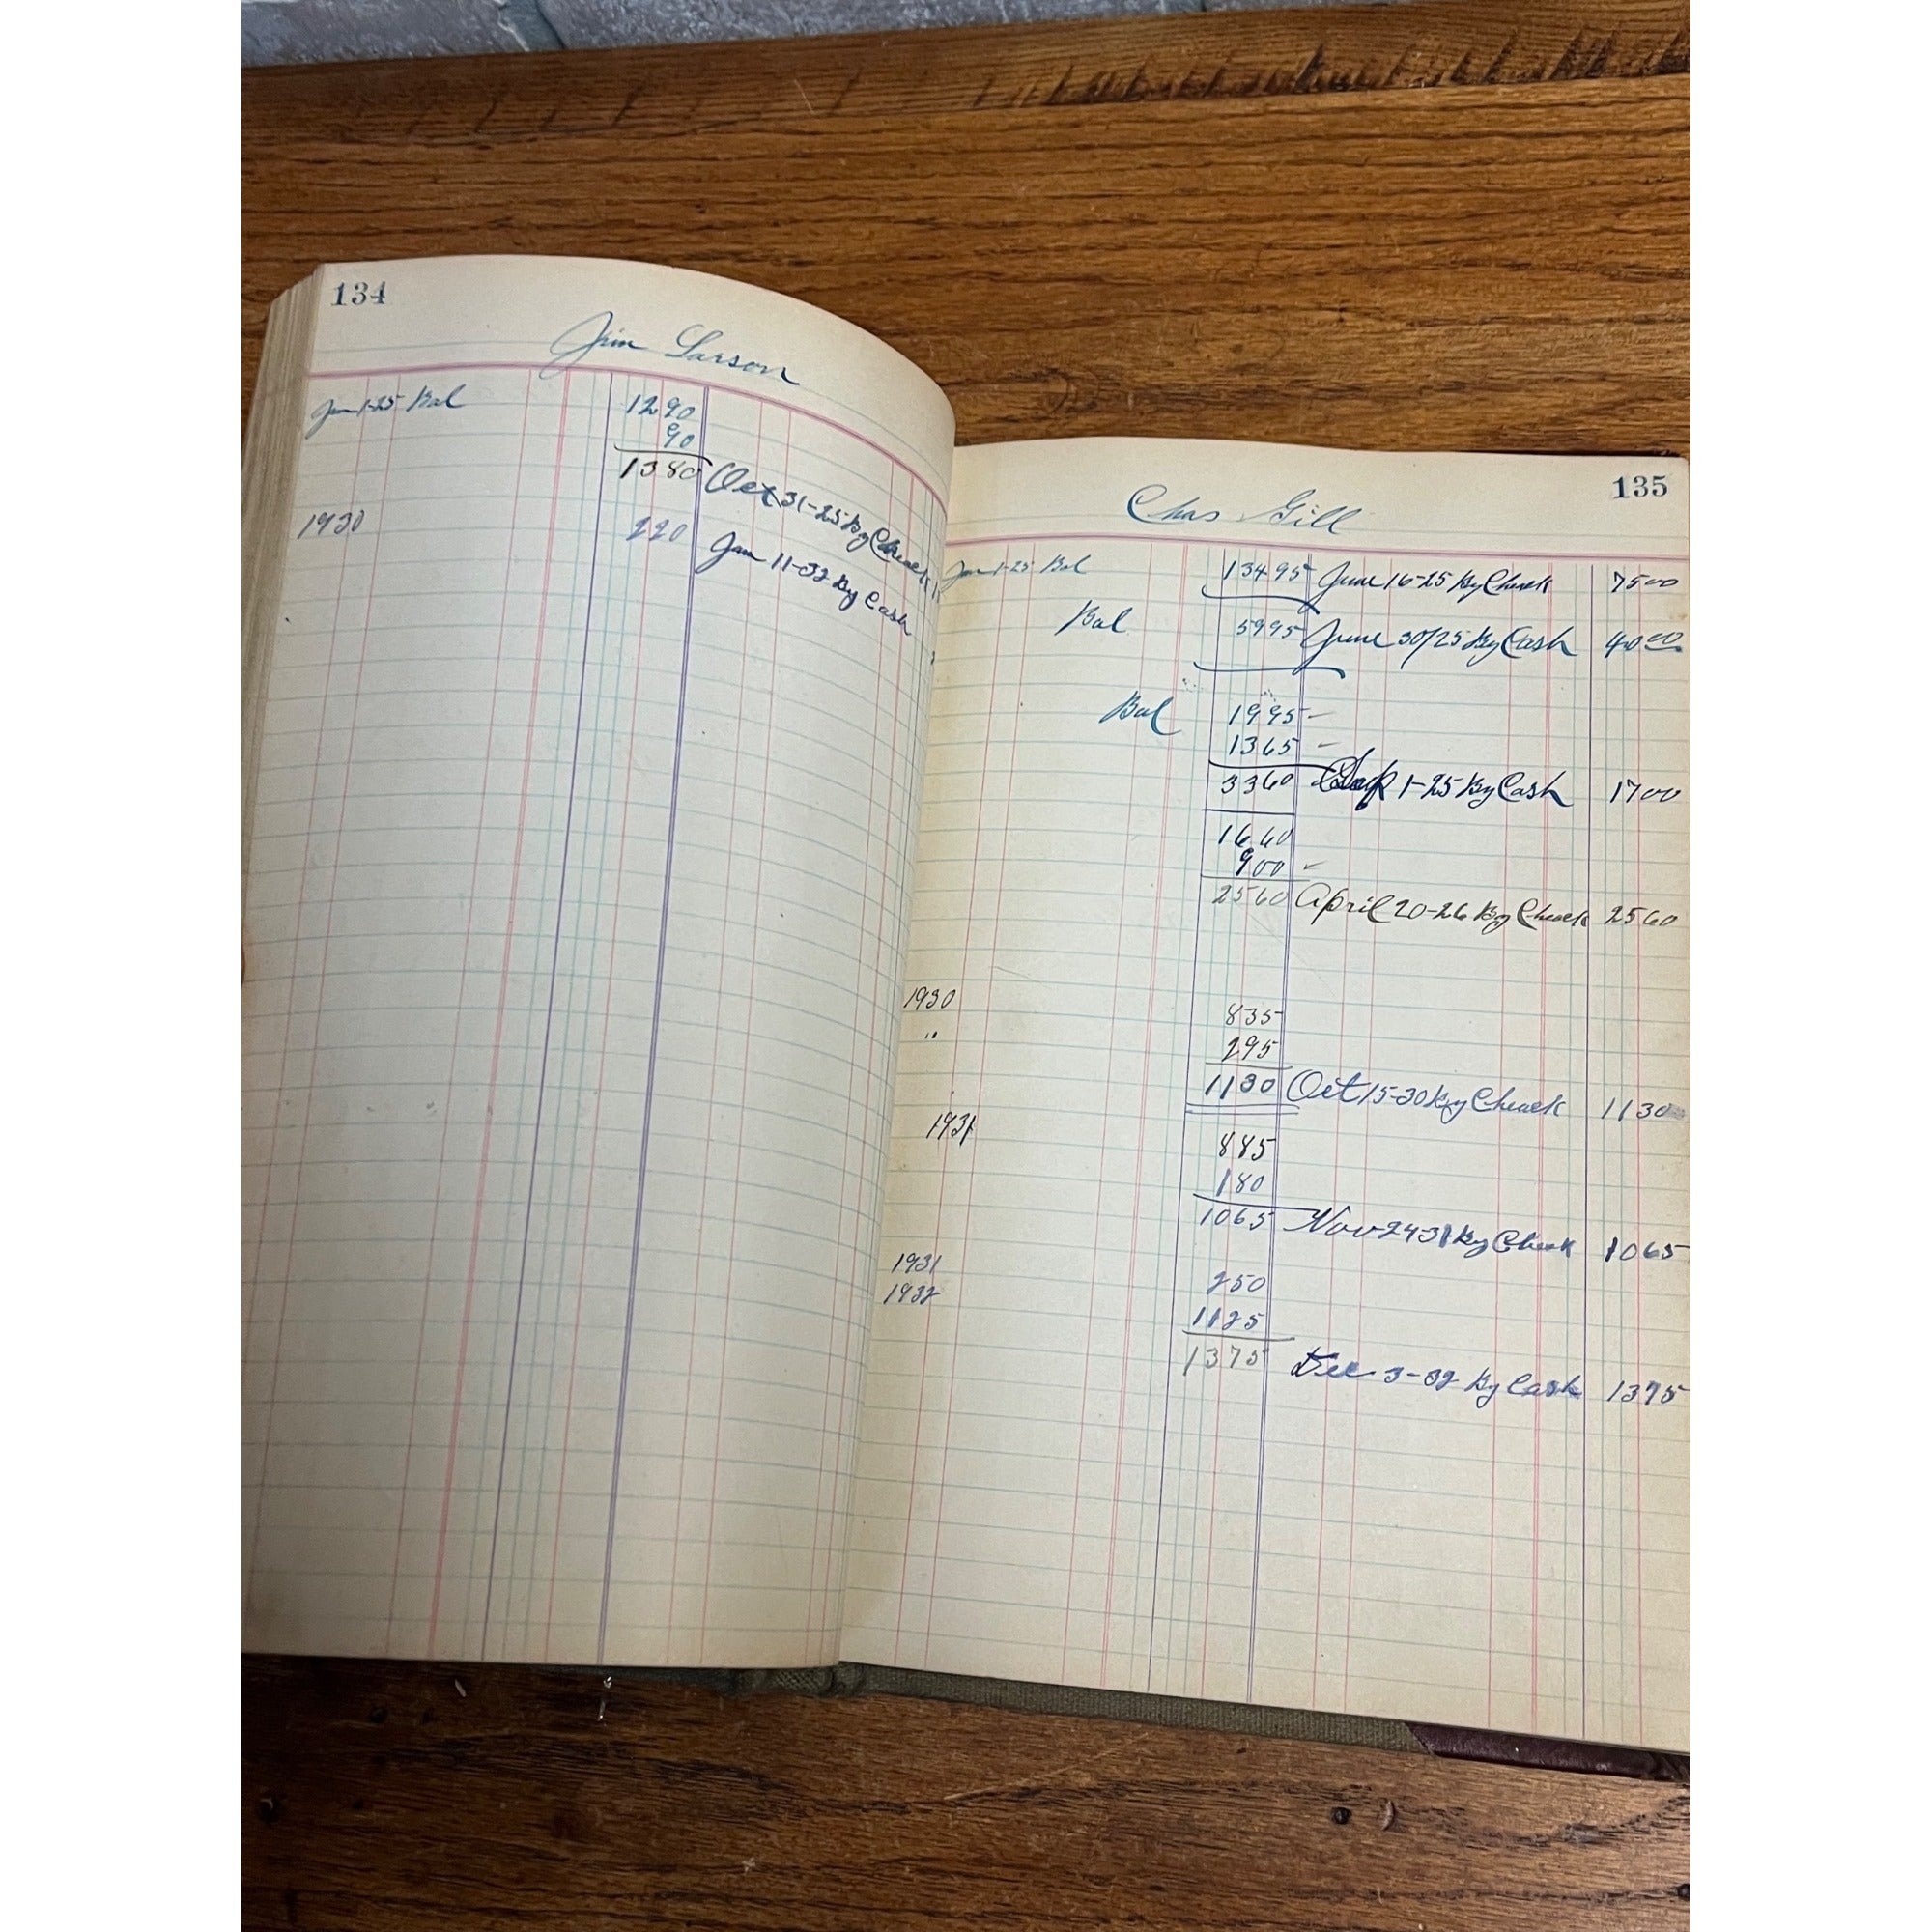 134
Jim Larson
Jan 1-25 Bal 1290
90
1380 Oct 31-25 By Cheack
1930 220 Jan 11-32 By Cash
135
Chas Gill
Jan 1-25 Bal 13495 June 16-25 By Cheack 7500
Bal 5995 June 30/25 By Cash 4000
Bal 1995 -
1365 -
3360 1-25 By Cash 1700
1660
900 -
2560 April 20-26 By Cheack 2560
1930 835
" 295
1130 Oct 15-30 By Cheack 1130
1931 885
180
1065 Nov 24-31 By Cheack 1065
1931 250
1932 1125
1375 Dec 3-32 By Cash 1375